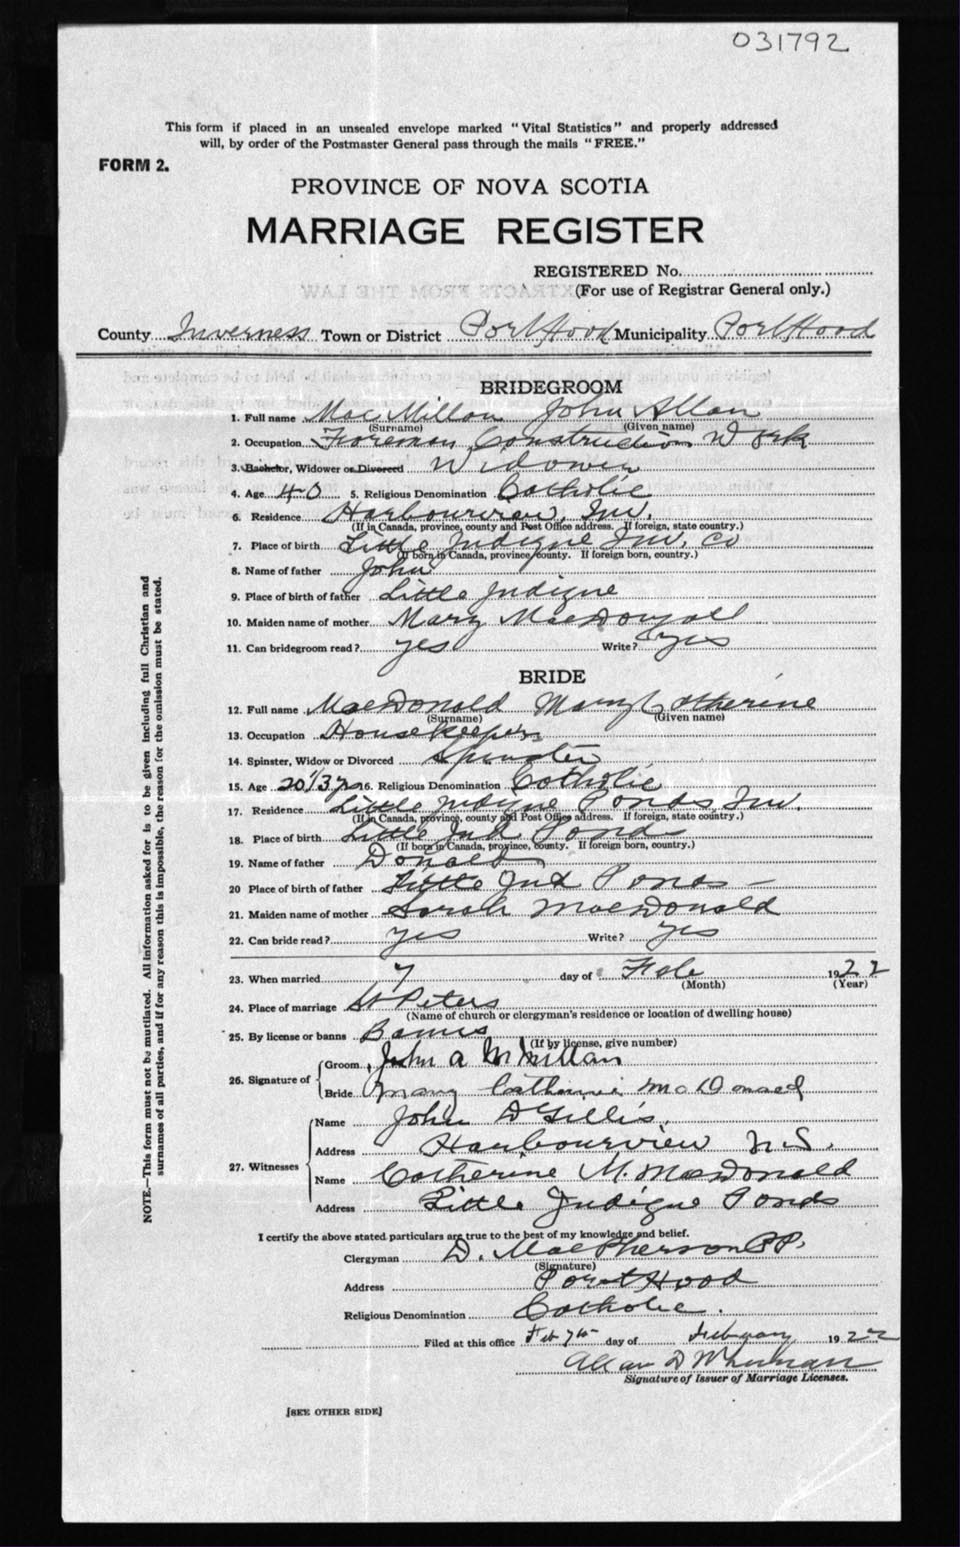 031792
This form if placed in an unsealed envelope marked "Vital Statistics" and properly addressed
will, by order of the Postmaster General pass through the mails "FREE."
FORM 2.
PROVINCE OF NOVA SCOTIA
MARRIAGE REGISTER
REGISTERED No.
(For use of Registrar General only.)
County Inverness Town or District Port Hood Municipality Port Hood
BRIDEGROOM
1. Full name MacMillan John Allan
(Surname) (Given name)
2. Occupation Foreman Construction Work
3. Bachelor, Widower or Divorced Widower
4. Age 40 5. Religious Denomination Catholic
6. Residence Harbourview, Inv.
(If in Canada, province, county and Post Office address. If foreign, state country.)
7. Place of birth Little Judique Inv. Co
(If born in Canada, province, county. If foreign born, country.)
8. Name of father John
9. Place of birth of father Little Judique
10. Maiden name of mother Mary MacDougall
11. Can bridegroom read? yes Write? yes
BRIDE
12. Full name MacDonald Mary Catherine
(Surname) (Given name)
13. Occupation Housekeeper
14. Spinster, Widow or Divorced Spinster
15. Age 16. Religious Denomination Catholic
17. Residence Little Judique Ponds Inv.
(If in Canada, province, county and Post Office address. If foreign, state country.)
18. Place of birth Little Jud Ponds
(If born in Canada, province, county. If foreign born, country.)
19. Name of father Donald
20 Place of birth of father Little Jud Ponds
21. Maiden name of mother Sarah MacDonald
22. Can bride read? yes Write? yes
23. When married 7 day of Feb 1922
(Month) (Year)
24. Place of marriage St Peters
(Name of church or clergyman's residence or location of dwelling house)
25. By license or banns Banns
(If by license, give number)
26. Signature of
Groom John A McMillan
Bride Mary Catherine McDonald
27. Witnesses
Name John D Gillis
Address Harbourview N.S.
Name Catherine M. MacDonald
Address Little Judique Ponds
I certify the above stated particulars are true to the best of my knowledge and belief.
Clergyman D. MacPherson P.P.
(Signature)
Address Port Hood
Religious Denomination Catholic.
Filed at this office Feb 7th day of February 1922
Allan D
Signature of Issuer of Marriage Licenses.
[SEE OTHER SIDE]
NOTE.—This form must not be mutilated. All information asked for is to be given including full Christian and
surnames of all parties, and if for any reason this is impossible, the reason for the omission must be stated.